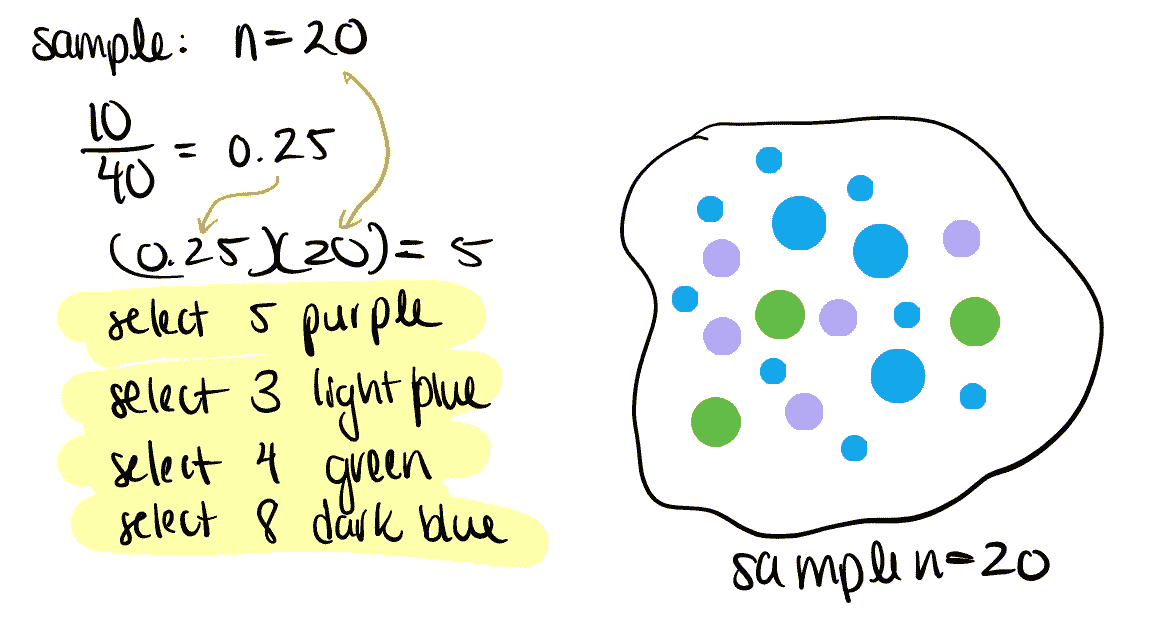 sample: n=20
10
40
= 0.25
(0.25)(20)= 5
select 5 purple
select 3 light blue
select 4 green
select 8 dark blue
sample n=20